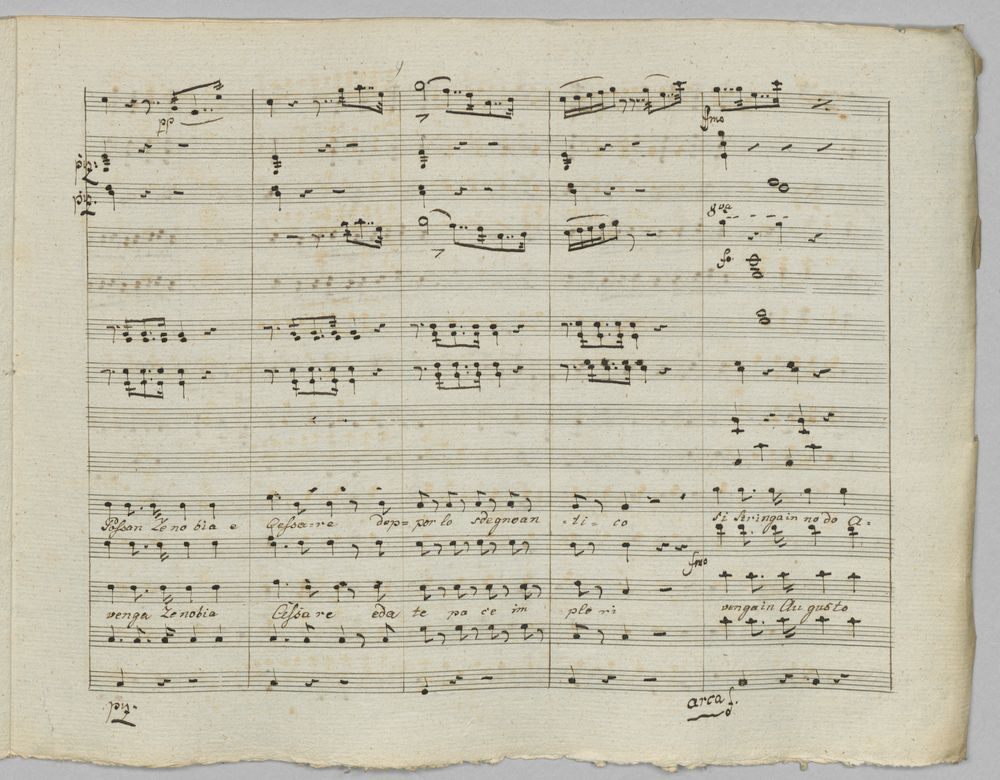 pp
fmo
piz:
piz:
8va
fo.
Possan Zenobia e Cessare dep=por lo sdegno an-ti-co si stringa in nodo A=
fmo
venga Zenobia Cessare e da te pace im plori venga in Augusto
piz.
arca f.